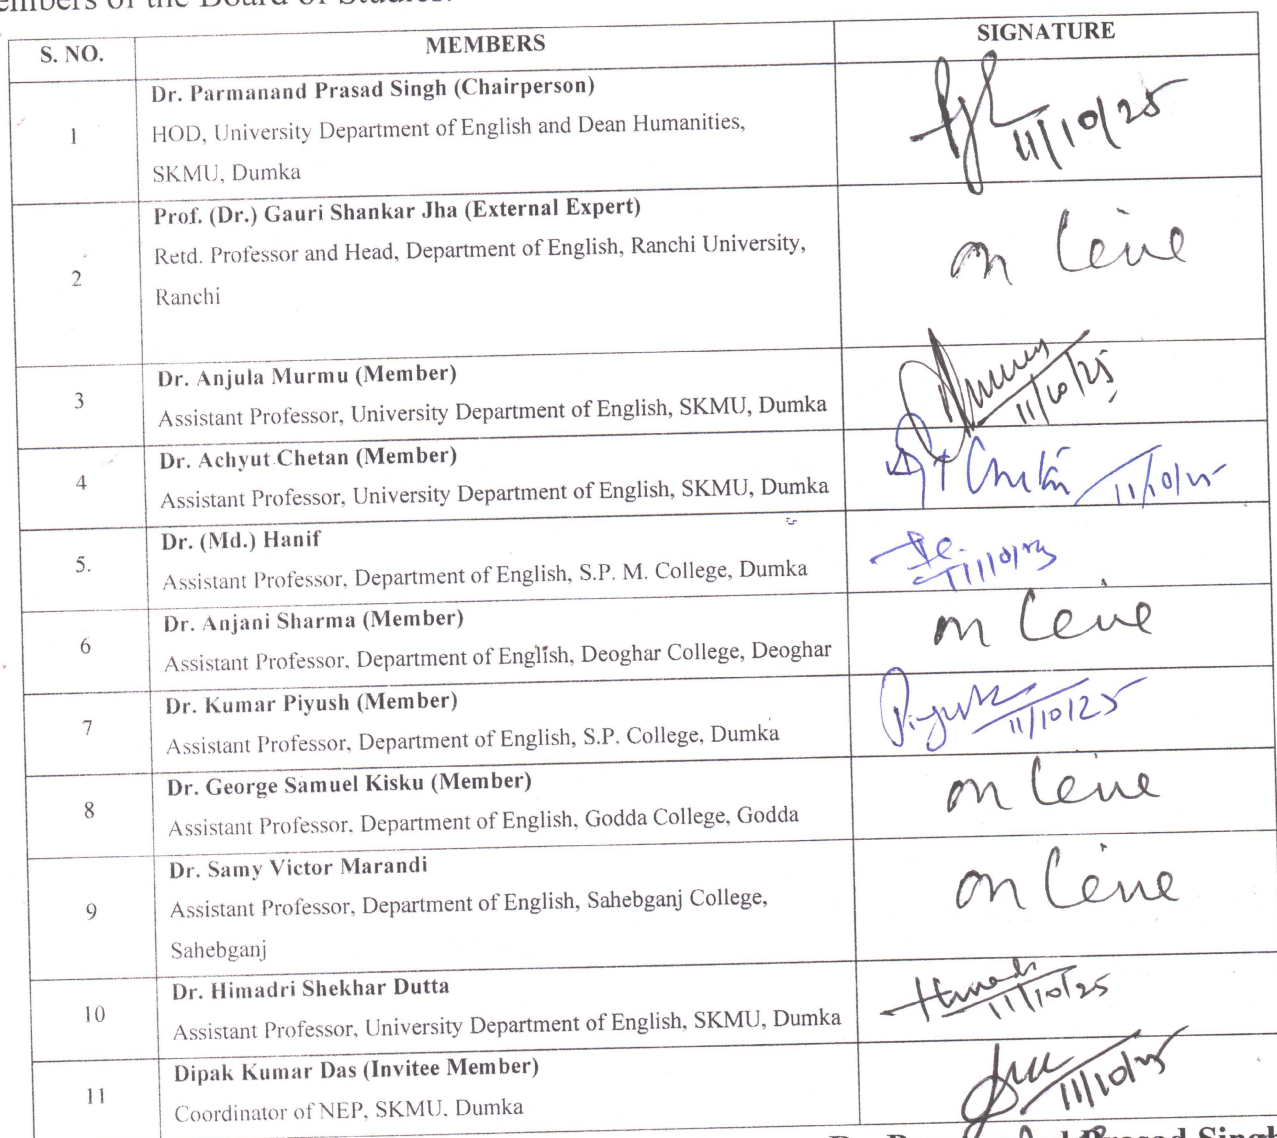 embers of the Board of Studies.
S. NO. MEMBERS SIGNATURE
1
Dr. Parmanand Prasad Singh (Chairperson)
HOD, University Department of English and Dean Humanities,
SKMU, Dumka
11/10/25
2
Prof. (Dr.) Gauri Shankar Jha (External Expert)
Retd. Professor and Head, Department of English, Ranchi University,
Ranchi
on line
3
Dr. Anjula Murmu (Member)
Assistant Professor, University Department of English, SKMU, Dumka
11/10/25
4
Dr. Achyut Chetan (Member)
Assistant Professor, University Department of English, SKMU, Dumka
11/10/25
5.
Dr. (Md.) Hanif
Assistant Professor, Department of English, S.P. M. College, Dumka
11/10/25
6
Dr. Anjani Sharma (Member)
Assistant Professor, Department of English, Deoghar College, Deoghar
on line
7
Dr. Kumar Piyush (Member)
Assistant Professor, Department of English, S.P. College, Dumka
Piyush
11/10/25
8
Dr. George Samuel Kisku (Member)
Assistant Professor, Department of English, Godda College, Godda
on line
9
Dr. Samy Victor Marandi
Assistant Professor, Department of English, Sahebganj College,
Sahebganj
on line
10
Dr. Himadri Shekhar Dutta
Assistant Professor, University Department of English, SKMU, Dumka
11/10/25
11
Dipak Kumar Das (Invitee Member)
Coordinator of NEP, SKMU, Dumka
11/10/25
Prasad Singh